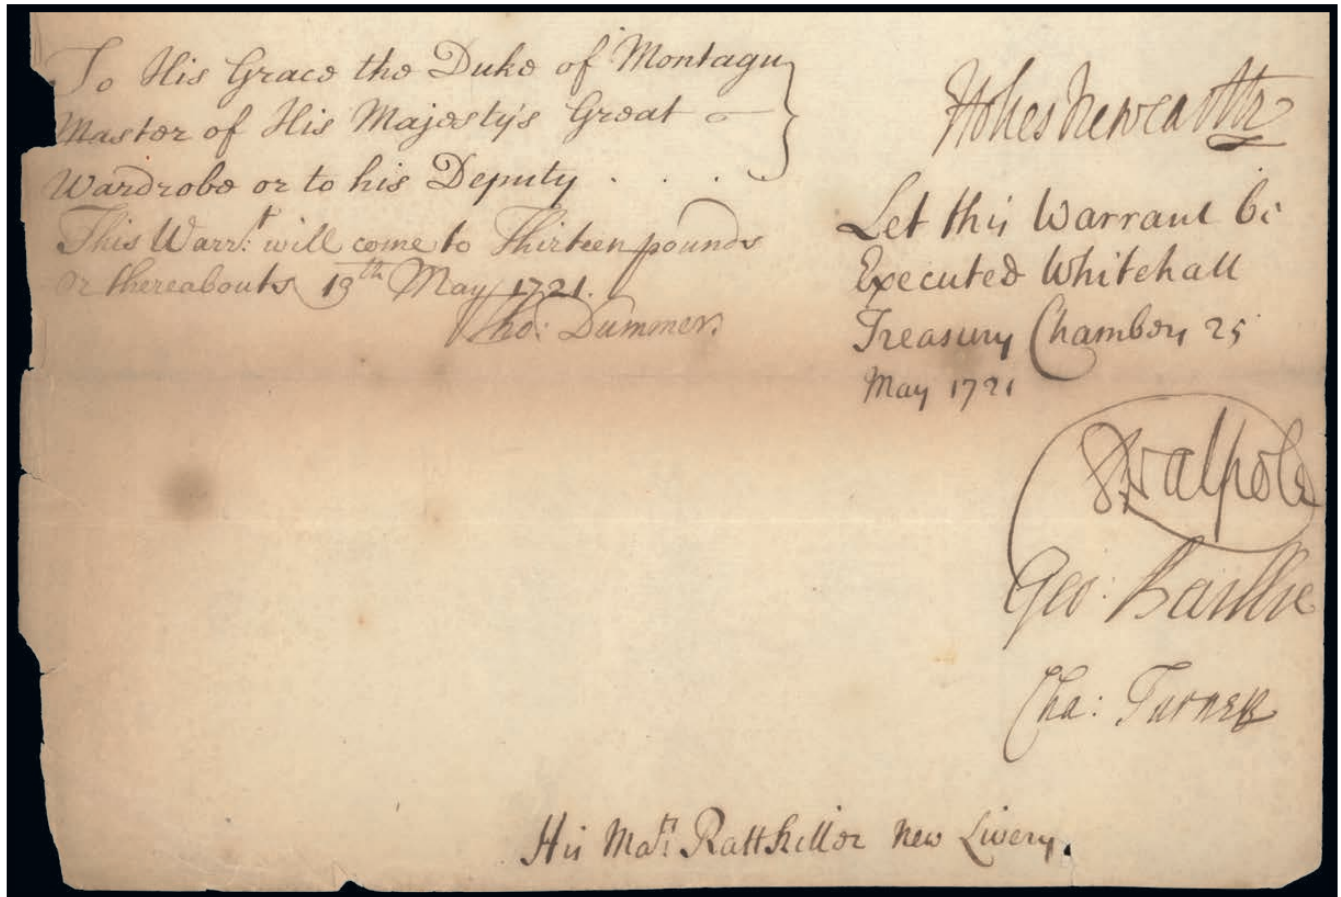 To His Grace the Duke of Montagu
Master of His Majesty's Great
Wardrobe or to his Deputy . . .
This Warrt: will come to Thirteen pounds
or thereabouts 19th May 1721.
Tho: Dummer.
Holles Newcastle
Let this Warrant be
Executed Whitehall
Treasury Chambers 25
May 1721
R Walpole
Geo: Baillie
Cha: Turner
His Mats Rattkiller New Livery.